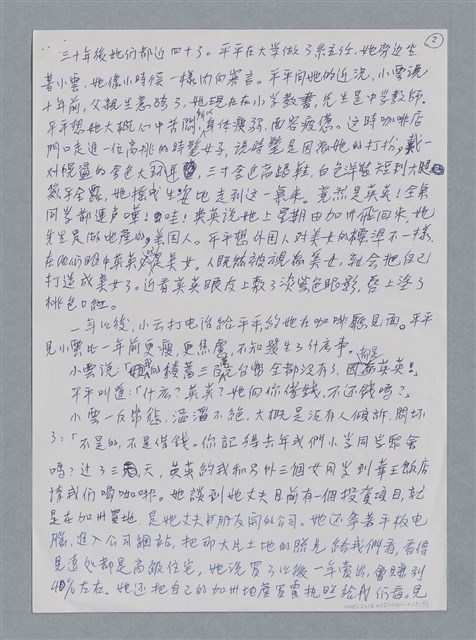 2
三十年後她们都近四十了。平平在大学做了系主任,她旁边坐
着小雲,她像小時候一樣内向寡言。平平问她的近況,小雲说
十年前,父親生意垮了,她現在在小学教書,先生是中学教師。
平平想她大概心中苦悶,身体瘦弱,面容疲憊。这時咖啡店
門口走進一位高挑的時髦女子,说時髦是因為她的打扮,戴一
对慢盪的金色大耳环,三寸金色高跟鞋,白色洋裝短到大腿
幾乎全露,她搖曳生姿地走到这一桌來。竟然是英英!全桌
同学都連声嘩!哇!英英说她上星期由加州飛回來,她
先生是做地產的,美国人。平平想外国人对美女的標準不一樣,
在他们眼中英英是美女。人既然被視為美女,就会把自己
打造成美女了。近看英英眼皮上敷了淡紫色眼影,唇上塗了
桃色口紅。
一年以後,小云打电话给平平,約她在咖啡廳見面。平平
見小雲比一年前更瘦,更焦慮,不知發生了什么事。
小雲说:「我的積蓄三百万台幣全都没有了,都是因為英英!」
平平叫道:「什么?英英?她向你借錢,不还錢吗?」
小雲一反常態,滔滔不絕,大概是沒有人傾訴,悶坏
了:「不是的,不是借錢。你記得去年我們小学同学聚会
嗎?过了三天,英英約我和另外三個女同学到華王飯店
請我们喝咖啡。她談到她丈夫目前有一個投资项目,就
是在加州買地,是她丈夫的朋友開的公司。她还拿着平板电
腦,進入公司網站,把那大片土地的照片给我們看,看得
見遠处都是高級住宅,她说買了以後一年賣出,會賺到
40%左右。她还把自己的加州地產買賣執照给我们看。見